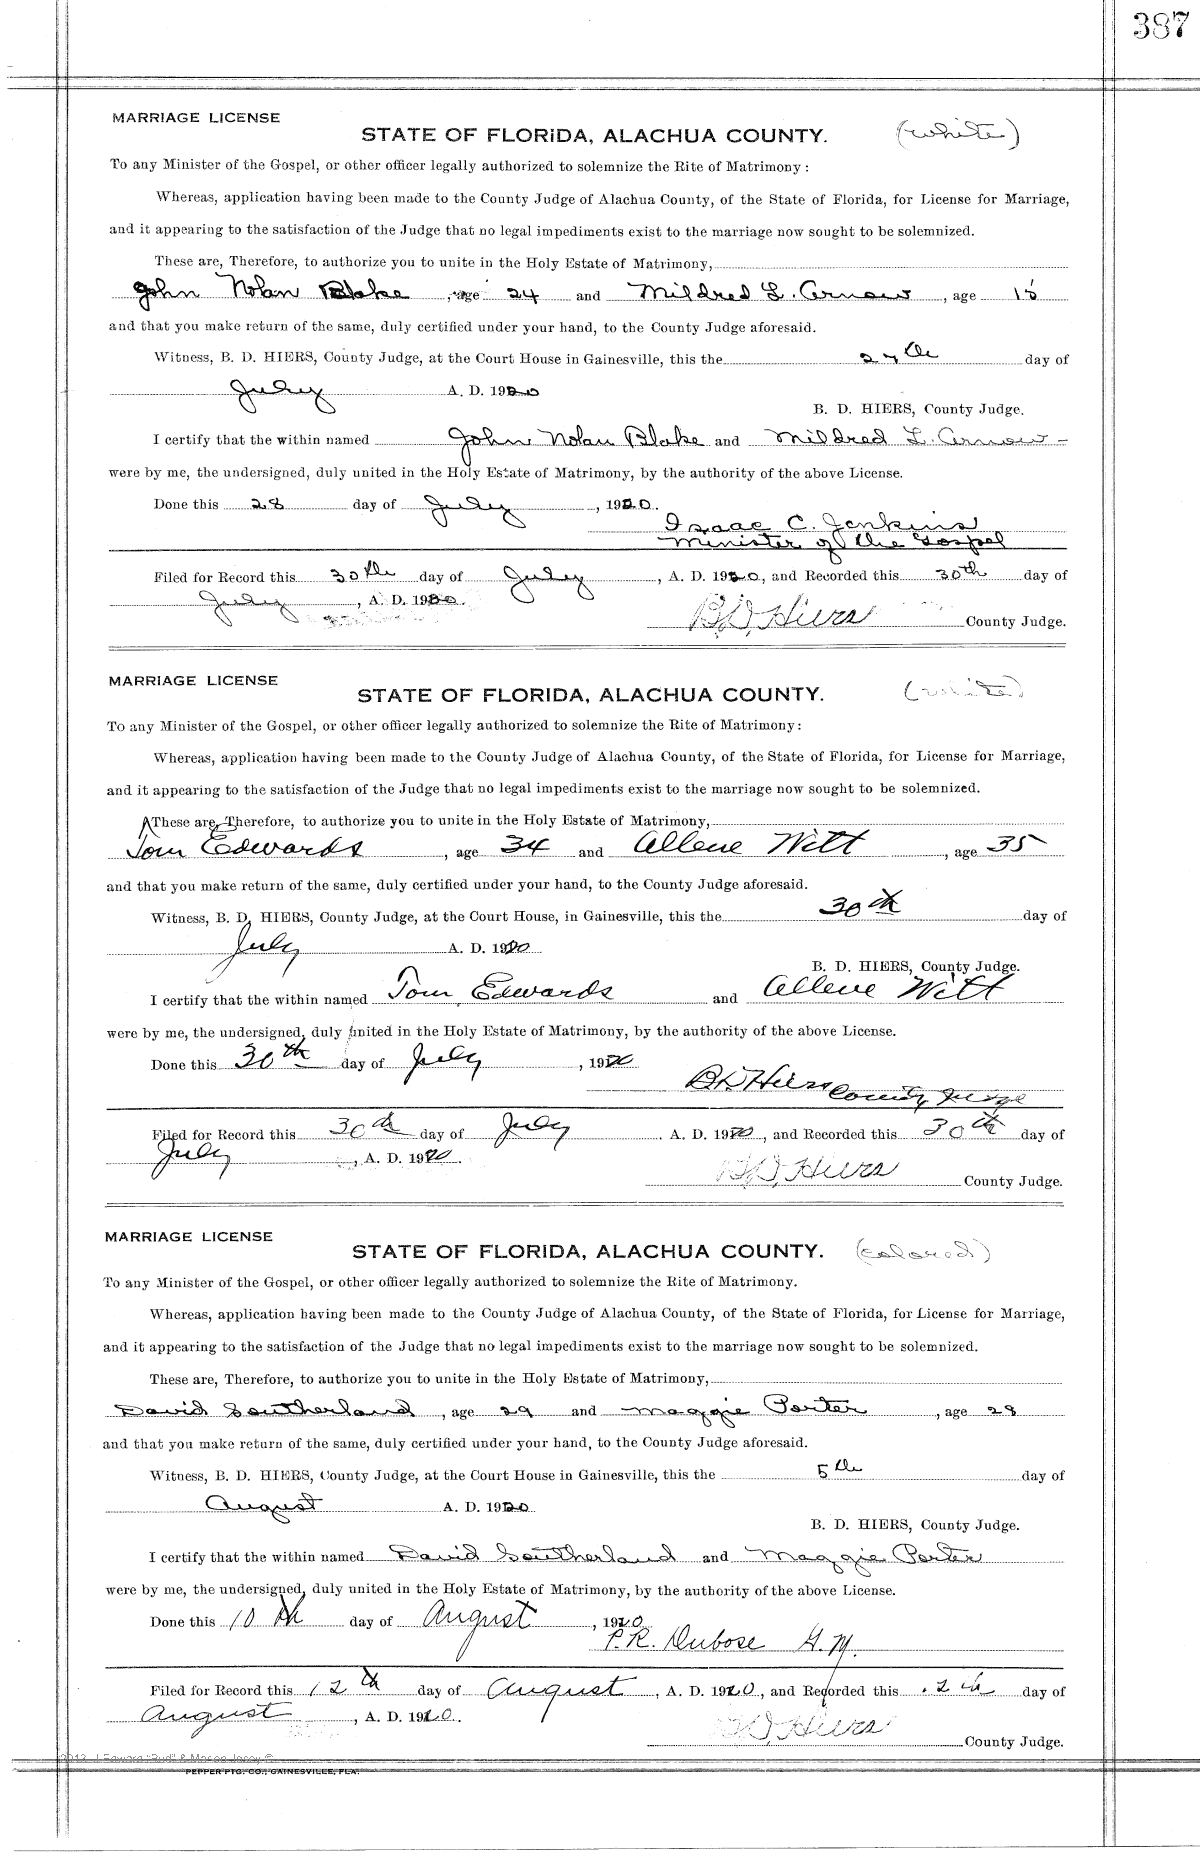 387
MARRIAGE LICENSE
STATE OF FLORIDA, ALACHUA COUNTY. (white)
To any Minister of the Gospel, or other officer legally authorized to solemnize the Rite of Matrimony:
Whereas, application having been made to the County Judge of Alachua County, of the State of Florida, for License for Marriage,
and it appearing to the satisfaction of the Judge that no legal impediments exist to the marriage now sought to be solemnized.
These are, Therefore, to authorize you to unite in the Holy Estate of Matrimony,
John Nolan Blake, age 24 and Mildred L. Arnow, age 15
and that you make return of the same, duly certified under your hand, to the County Judge aforesaid.
Witness, B. D. HIERS, County Judge, at the Court House in Gainesville, this the 27th day of
July A. D. 1920
B. D. HIERS, County Judge.
I certify that the within named John Nolan Blake and Mildred L. Arnow
were by me, the undersigned, duly united in the Holy Estate of Matrimony, by the authority of the above License.
Done this 28 day of July, 1920.
Isaac C. Jenkins
Minister of the Gospel
Filed for Record this 30th day of July, A. D. 1920, and Recorded this 30th day of
July, A. D. 1920.
B. D. Hiers County Judge.
MARRIAGE LICENSE
STATE OF FLORIDA, ALACHUA COUNTY. (white)
To any Minister of the Gospel, or other officer legally authorized to solemnize the Rite of Matrimony:
Whereas, application having been made to the County Judge of Alachua County, of the State of Florida, for License for Marriage,
and it appearing to the satisfaction of the Judge that no legal impediments exist to the marriage now sought to be solemnized.
These are, Therefore, to authorize you to unite in the Holy Estate of Matrimony,
Tom Edwards, age 34 and Allene Witt, age 35
and that you make return of the same, duly certified under your hand, to the County Judge aforesaid.
Witness, B. D. HIERS, County Judge, at the Court House, in Gainesville, this the 30th day of
July A. D. 1920
B. D. HIERS, County Judge.
I certify that the within named Tom Edwards and Allene Witt
were by me, the undersigned, duly united in the Holy Estate of Matrimony, by the authority of the above License.
Done this 30th day of July, 1920
B D Hiers County Judge
Filed for Record this 30th day of July. A. D. 1920, and Recorded this 30th day of
July, A. D. 1920.
B. D. Hiers County Judge.
MARRIAGE LICENSE
STATE OF FLORIDA, ALACHUA COUNTY. (colored)
To any Minister of the Gospel, or other officer legally authorized to solemnize the Rite of Matrimony.
Whereas, application having been made to the County Judge of Alachua County, of the State of Florida, for License for Marriage,
and it appearing to the satisfaction of the Judge that no legal impediments exist to the marriage now sought to be solemnized.
These are, Therefore, to authorize you to unite in the Holy Estate of Matrimony,
David Southerland, age 29 and Maggie Porter, age 28
and that you make return of the same, duly certified under your hand, to the County Judge aforesaid.
Witness, B. D. HIERS, County Judge, at the Court House in Gainesville, this the 5th day of
August A. D. 1920
B. D. HIERS, County Judge.
I certify that the within named David Southerland and Maggie Porter
were by me, the undersigned, duly united in the Holy Estate of Matrimony, by the authority of the above License.
Done this 10th day of August, 1920
P. R. Dubose G. M.
Filed for Record this 12th day of August, A. D. 1920, and Recorded this 12th day of
August, A. D. 1920.
B. D. Hiers County Judge.
PEPPER PTG. CO., GAINESVILLE, FLA.